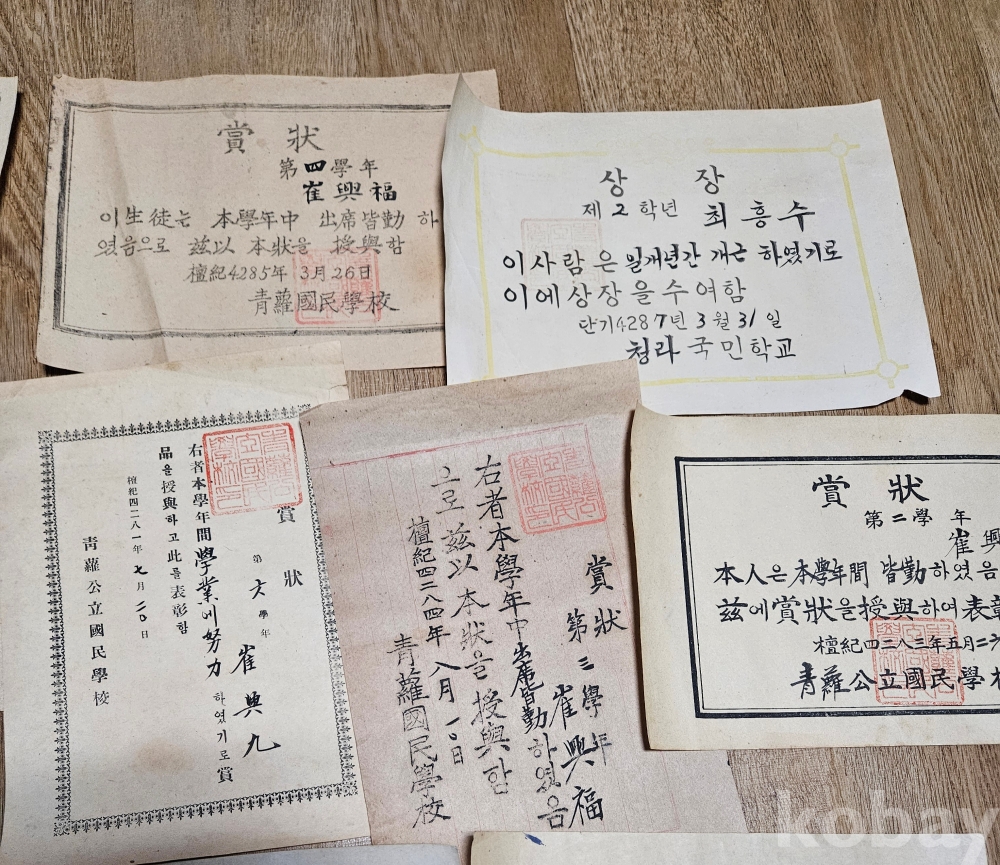 賞 狀
第四學年
崔興福
이生徒는 本學年中 出席皆勤 하
였음으로 玆以 本狀을 授與함
檀紀4285年 3月26日
青蘿國民學校
상 장
제2학년 최흥수
이사람은 일개년간 개근 하였기로
이에상장을수여함
단기4287년 3월 31일
청라국민학교
賞 狀
第六學年 崔興九
右者本學年間學業에努力하였기로賞
品을授與하고此를表彰함
檀紀四二八一年七月二〇日
青蘿公立國民學校
賞狀
第三學年 崔興福
右者本學年中出席皆勤하였음
으로 玆以 本狀을 授與함
檀紀四二八四年 八月一〇日
青蘿國民學校
賞 狀
第二學年
崔興
本人은本學年間 皆勤하였음
玆에賞狀을授與하여表彰
檀紀四二八三年五月二六
青蘿公立國民學校
kobay